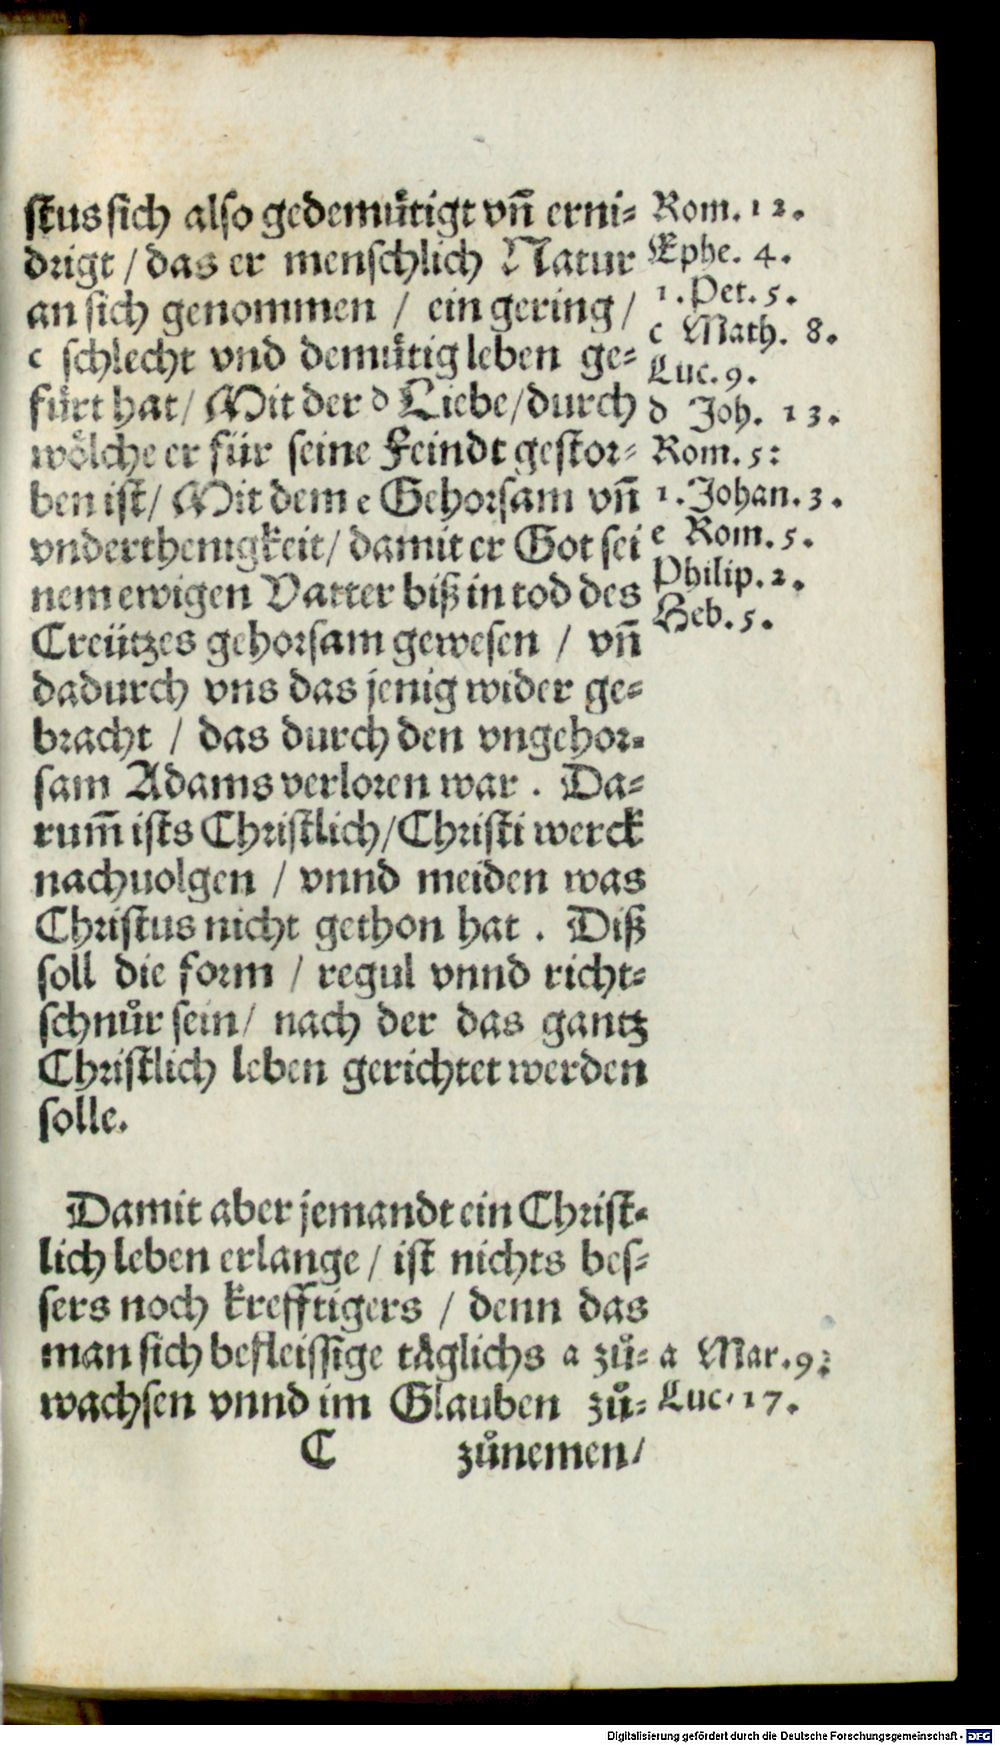 stus sich also gedemuͤtigt vn̄ erni⸗
drigt / das er menschlich Natur
an sich genommen / ein gering /
c schlecht vnd demuͤtig leben ge⸗
fuͤrt hat / Mit der d Liebe / durch
woͤlche er für seine Feindt gestor⸗
ben ist / Mit dem e Gehorsam vn̄
vnderthenigkeit / damit er Got sei
nem ewigen Vatter biß in tod des
Creützes gehorsam gewesen / vn̄
dadurch vns das jenig wider ge⸗
bracht / das durch den vngehor⸗
sam Adams verloren war . Da⸗
rum̄ ists Christlich / Christi werck
nachuolgen / vnnd meiden was
Christus nicht gethon hat . Diß
soll die form / regul vnnd richt⸗
schnuͦr sein / nach der das gantz
Christlich leben gerichtet werden
solle.
Rom. 12.
Ephe. 4.
1. Pet. 5.
c Math. 8.
Luc. 9.
d Joh. 13.
Rom. 5:
1. Johan. 3.
e Rom. 5.
Philip. 2.
Heb. 5.
Damit aber jemandt ein Christ⸗
lich leben erlange / ist nichts bes⸗
sers noch krefftigers / denn das
man sich befleissige taͤglichs a zuͦ⸗
wachsen vnnd im Glauben zuͦ⸗
a Mar. 9:
Luc. 17.
C zuͦnemen /
Digitalisierung gefördert durch die Deutsche Forschungsgemeinschaft - DFG